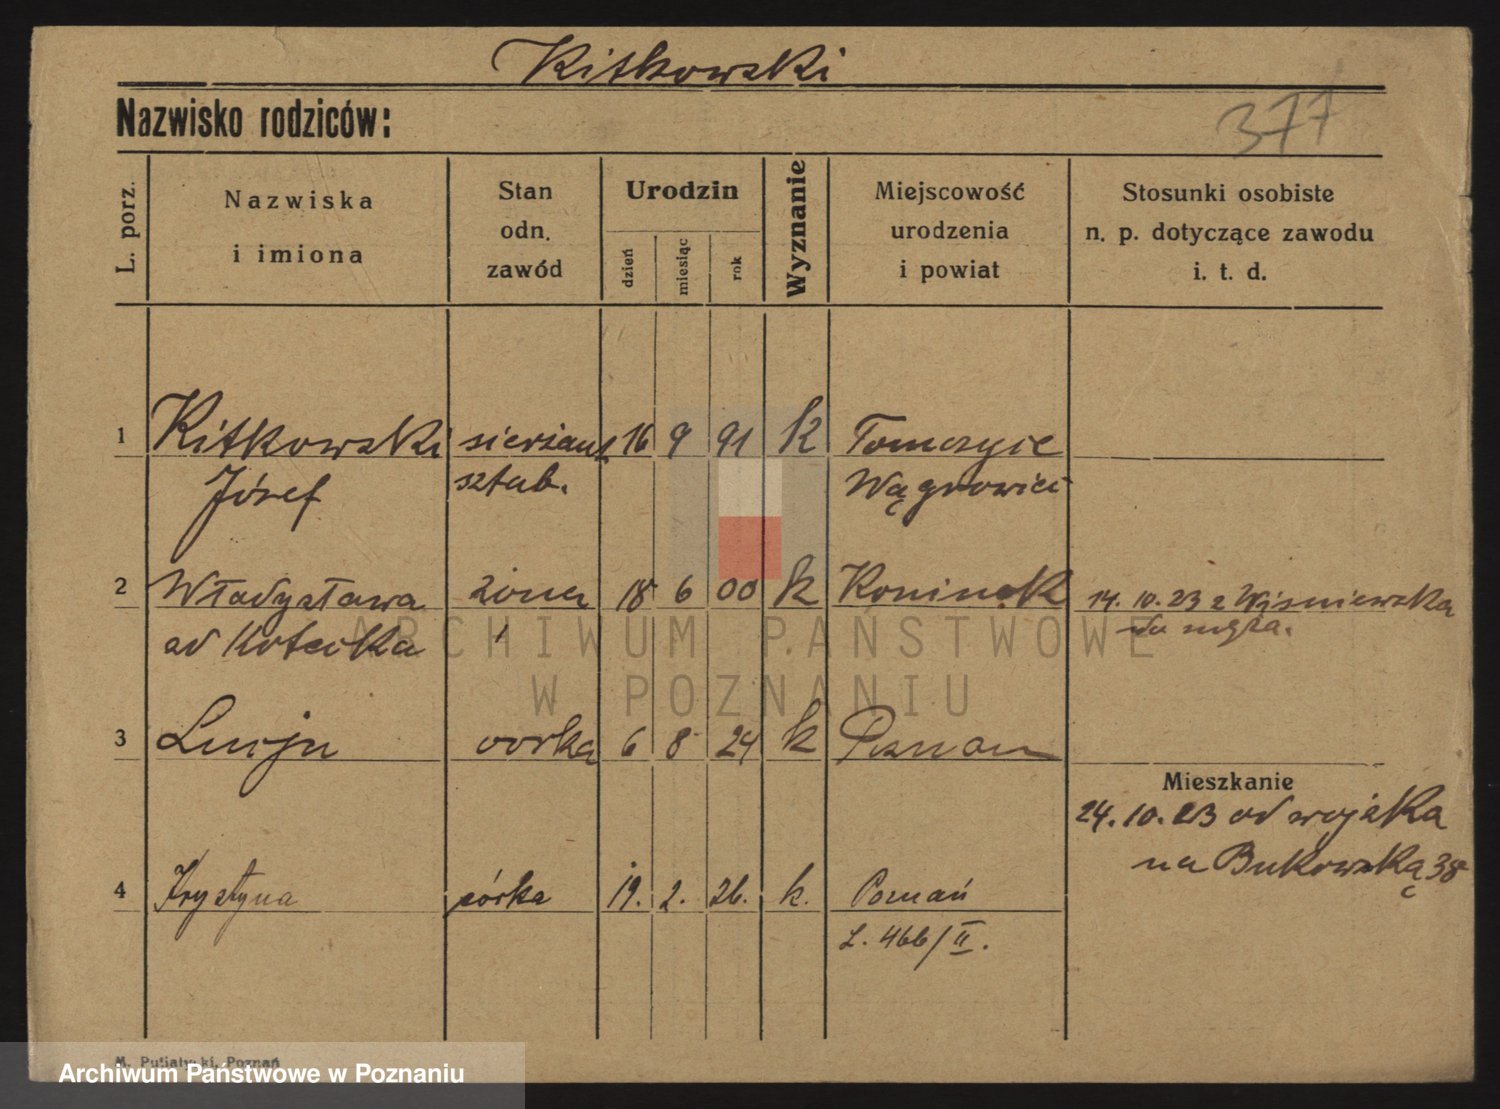 Kitkowski
Nazwisko rodziców:
377
L. porz.
Nazwiska
i imiona
Stan
odn.
zawód
Urodzin
dzień
miesiąc
rok
Wyznanie
Miejscowość
urodzenia
i powiat
Stosunki osobiste
n. p. dotyczące zawodu
i. t. d.
1 Kitkowski sierżant 16 9 91 k
Józef sztab. Wągrowiec
2 Władysława żona 18 6 00 k Koninek 14. 10. 23 z Wiśniewska
od
ARCHIWUM PAŃSTWOWE
W POZNANIU
3 córka 6 8 24 k Poznań
Mieszkanie
24. 10. 23 od wojska
na Bukowską 38
4 Krystyna córka 19. 2. 26. k. Poznań
L. 466/II.
M. Putiatycki, Poznań
Archiwum Państwowe w Poznaniu